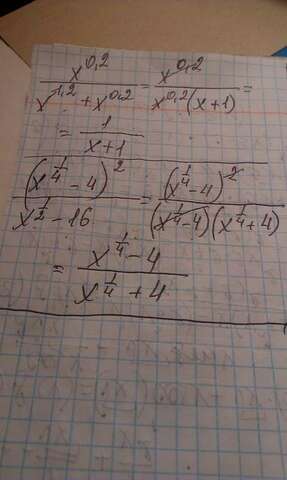 x^0,2 / (x^1,2 + x^0,2) = x^0,2 / (x^0,2 (x+1)) =
= 1 / (x+1)
(x^(1/4) - 4)^2 / (x^(1/2) - 16) = (x^(1/4) - 4)^2 / ((x^(1/4) - 4)(x^(1/4) + 4))
= (x^(1/4) - 4) / (x^(1/4) + 4)